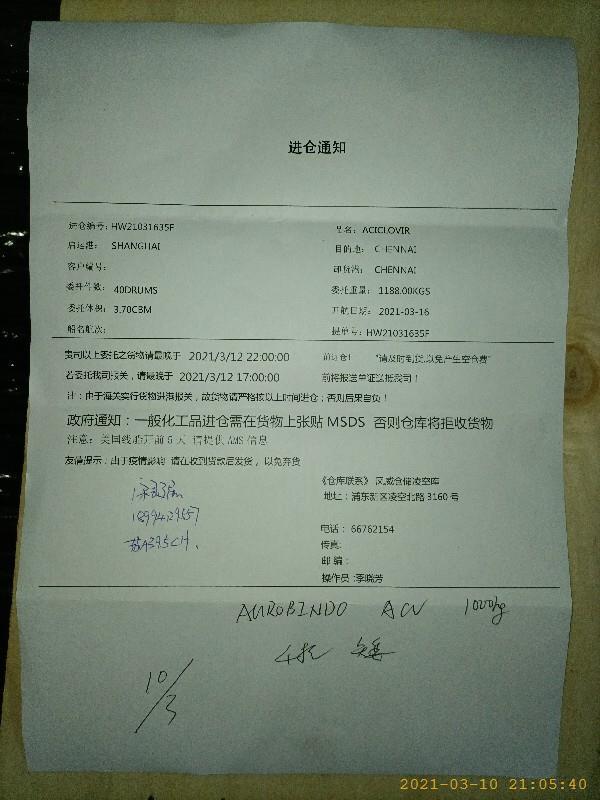 进仓通知
进仓编号: HW21031635F
品名: ACICLOVIR
启运港: SHANGHAI
目的地: CHENNAI
客户编号:
卸货港: CHENNAI
委托件数: 40DRUMS
委托重量: 1188.00KGS
委托体积: 3.70CBM
开航日期: 2021-03-16
船名航次:
提单号: HW21031635F
贵司以上委托之货物请最晚于 2021/3/12 22:00:00 前进仓! "请及时到货,以免产生空仓费"
若委托我司报关，请最晚于 2021/3/12 17:00:00 前将报送单证送抵我司!
注：由于海关实行货物进港报关，故货物请严格按以上时间进仓；否则后果自负!
政府通知：一般化工品进仓需在货物上张贴 MSDS 否则仓库将拒收货物
注意：美国线船开前5天 请提供AMS信息
友情提示：由于疫情影响 请在收到付款后发货，以免弃货
《仓库联系》 风威仓储凌空库
地址：浦东新区凌空北路 3160 号
电话： 66762154
传真:
邮 编:
操作员:李晓芳
AUROBINDO ACV 1000kg
10/3
2021-03-10 21:05:40